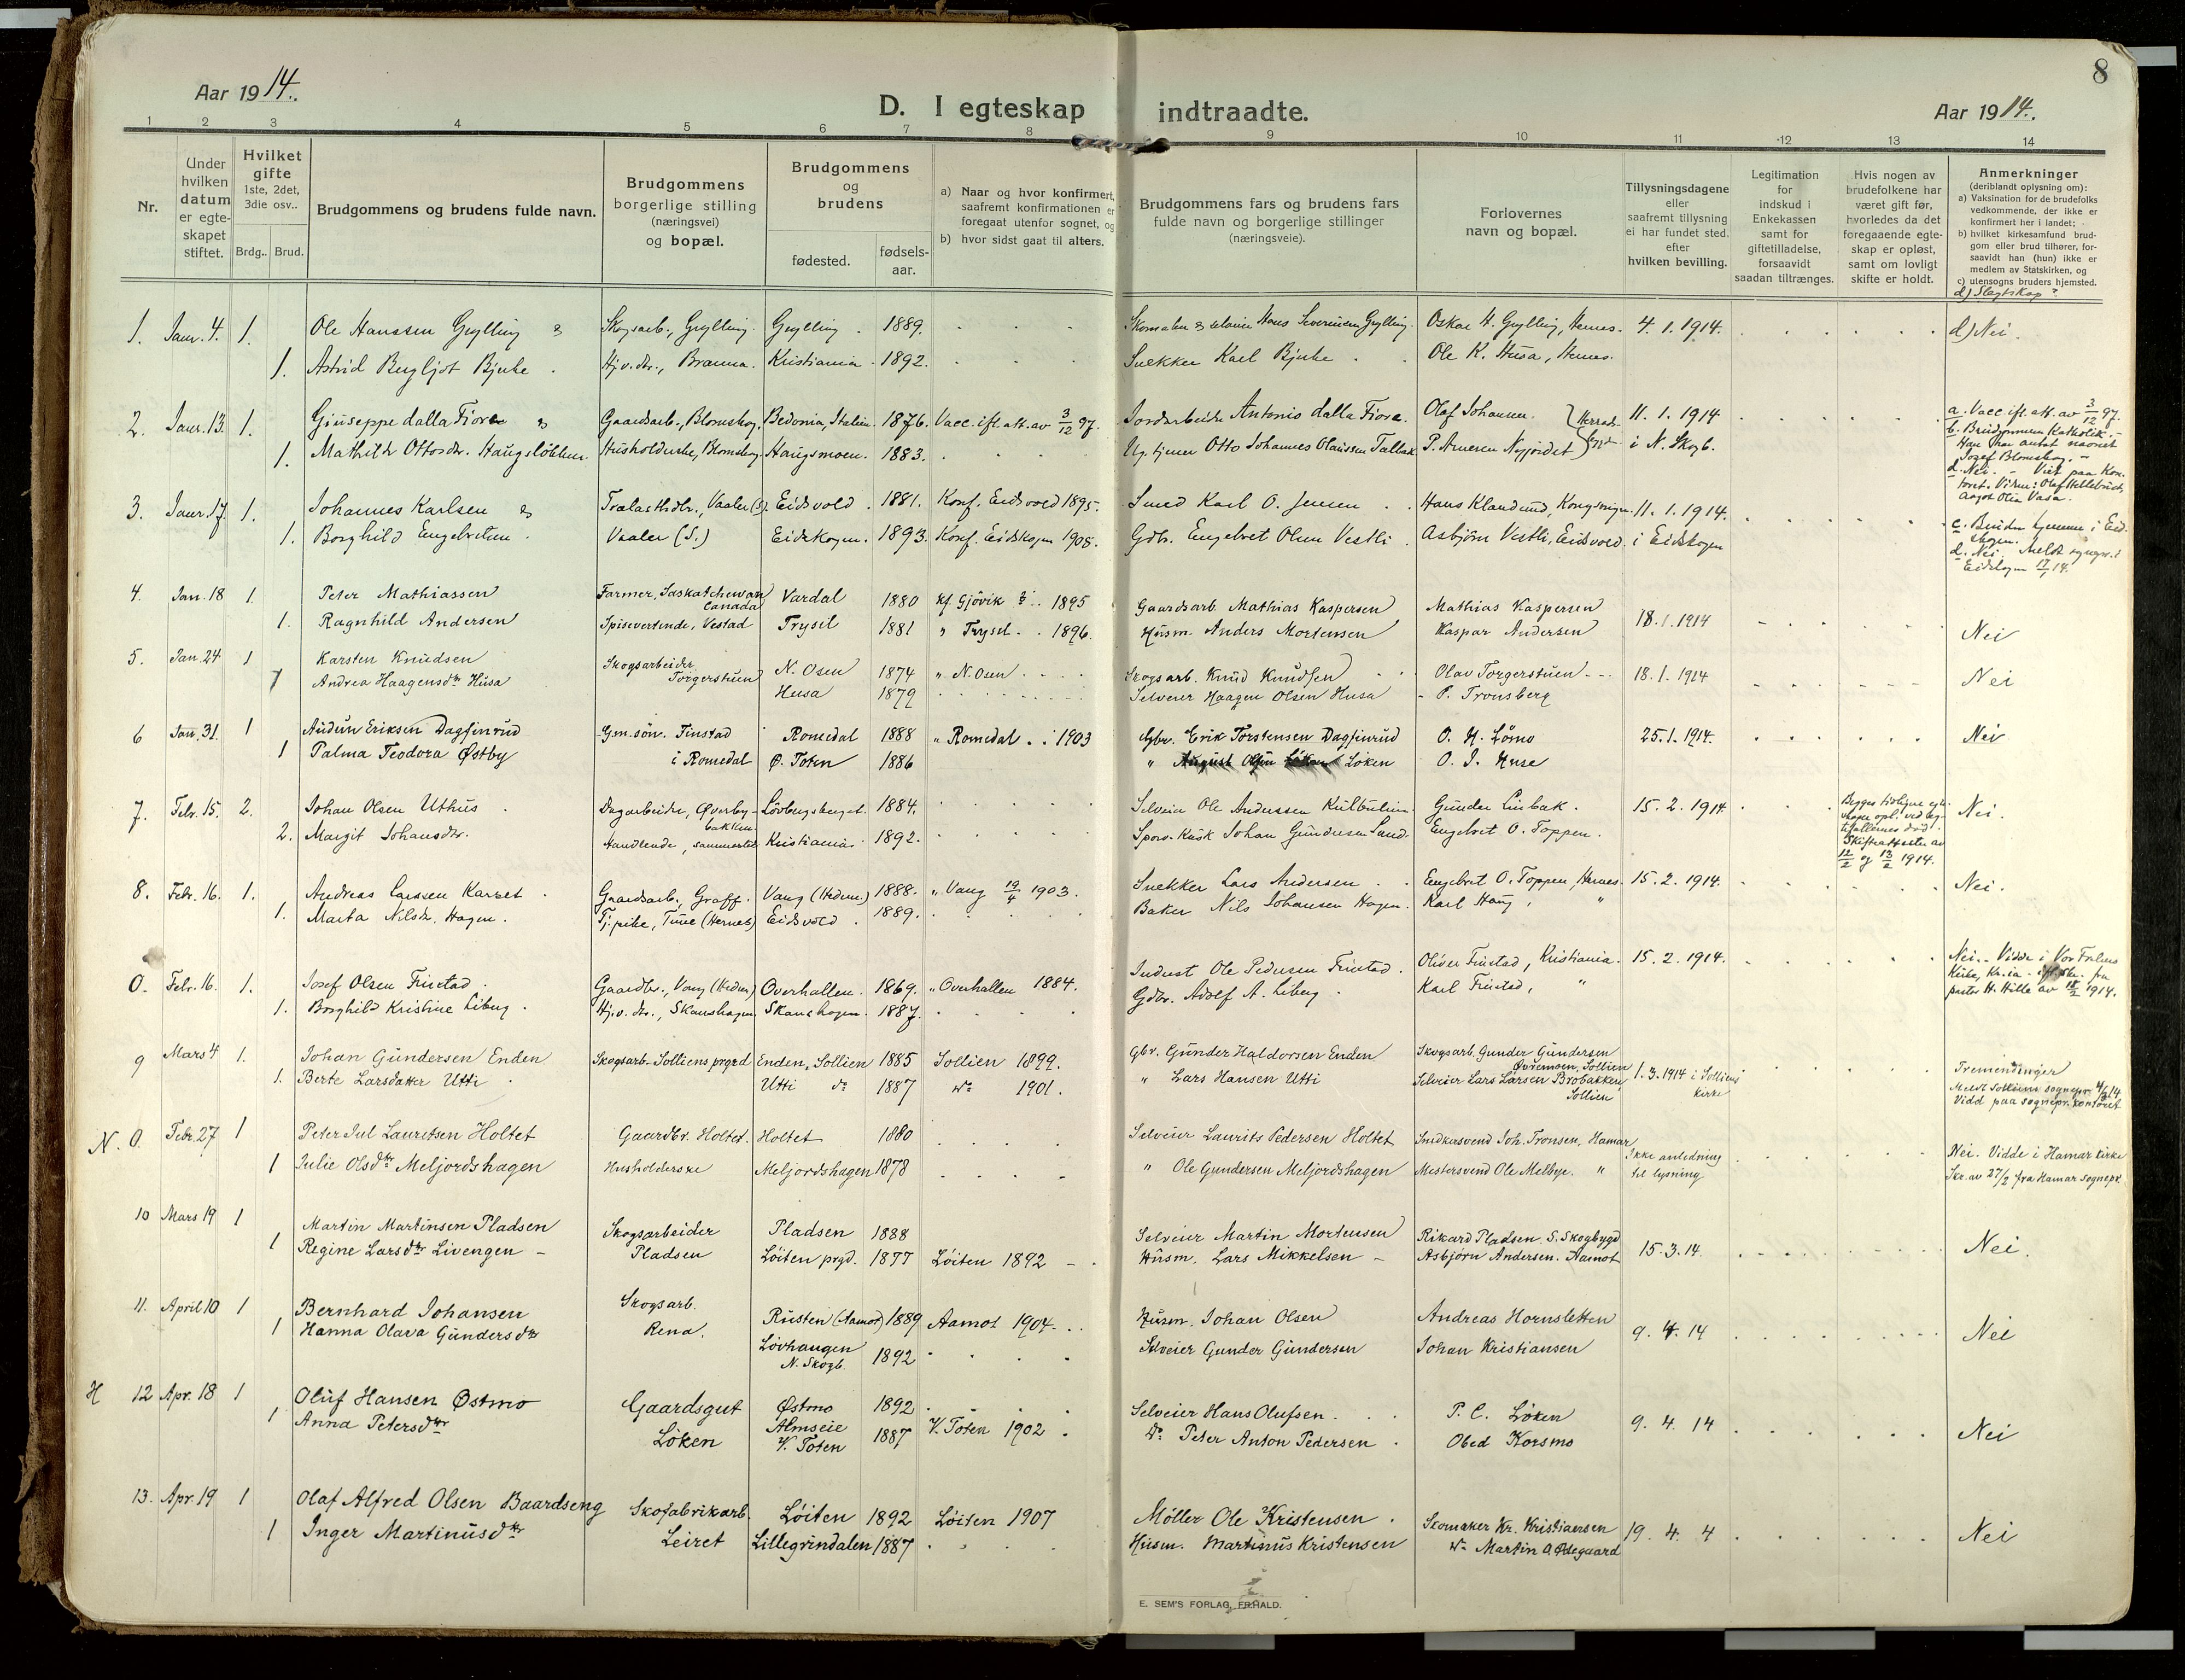 8
Aar 1914.
D. I egteskap indtraadte.
Aar 1914.
1 2 3 4 5 6 7 8 9 10 11 12 13 14
Nr.
Under hvilken datum er egteskapet stiftet.
Hvilket gifte 1ste, 2det, 3die osv..
Brdg.. Brud.
Brudgommens og brudens fulde navn.
Brudgommens borgerlige stilling (næringsvei) og bopæl.
Brudgommens og brudens
fødested.
fødsels-aar.
a) Naar og hvor konfirmert, saafremt konfirmationen er foregaat utenfor sognet, og
b) hvor sidst gaat til alters.
Brudgommens fars og brudens fars fulde navn og borgerlige stillinger (næringsveie).
Forlovernes navn og bopæl.
Tillysningsdagene eller saafremt tillysning ei har fundet sted. efter hvilken bevilling.
Legitimation for indskud i Enkekassen samt for giftetilladelse, forsaavidt saadan tiltrænges.
Hvis nogen av brudefolkene har været gift før, hvorledes da det foregaaende egteskap er opløst, samt om lovligt skifte er holdt.
Anmerkninger
(deriblandt oplysning om):
a) Vaksination for de brudefolks vedkommende, der ikke er konfirmert her i landet;
b) hvilket kirkesamfund brudgom eller brud tilhører, forsaavidt han (hun) ikke er medlem av Statskirken, og
c) utensogns bruders hjemsted.
d) Slegtskap?
1. Janr. 4. 1. Ole Hanssen Grylling & Skogsarb., Grylling. Grylling. 1889. Skomaker & selveier Hans Severinsen Grylling. Oskar H. Grylling, Hernes. 4. 1. 1914. d) Nei.
1. Astrid Bergljot Bjerke. Hj.v. dtr., Brauna. Kristiania. 1892. Snekker Karl Bjerke. Ole K. Husa, Hernes.
2. Janr. 13. 1. Giuseppe dalla Fiore & Gaardsarb., Blomskog. Bedonia, Italien. 1876. Vacc. ifl. att. av 3/12 97. Jordarbeider Antonio dalla Fiore. Olaf Johansen. 11. 1. 1914 a. Vacc. ifl. att. av 3/12 97.
1. Mathilde Ottosdtr. Haugsløkken. Husholderske, Blomskog. Haugsmoen. 1883. Otto Johannes Olaussen P. Arnesen Nyjordet i N. Skogb. b. Brudgommen Katholik. -
Han har antat navnet
Josef Blomskog. -
d. Nei. - Viet paa Kontoret.
3. Janr. 17. 1. Johannes Karlsen & Trælasthdlr., Vaaler (S). Eidsvold. 1881. Konf. Eidsvold 1895. Smed Karl O. Jensen. Hans Klanderud, Kongsvinger. 11. 1. 1914. c. Bruden hjemme i Eidskogen.
1. Borghild Engebretsen. Vaaler (S.) Eidskogen. 1893. Konf. Eidskogen 1908. Gdbr. Engebret Olsen Vestli. Asbjørn Vestli, Eidsvold. i Eidskogen d. Nei. Meldt sognepr. i Eidskogen 17/1 14.
4. Jan. 18 1. Peter Mathiassen Farmer, Saskatchewan Canada Vardal 1880 kf. Gjøvik 1895 Gaardsarb. Mathias Kaspersen Mathias Kaspersen 18.1.1914
1. Ragnhild Andersen Spisevertinde, Vestad Trysil 1881 " Trysil. 1896. Husm. Anders Mortensen Kaspar Andersen Nei
5. Jan. 24 1 Karsten Knudsen Skogsarbeider Torgerstuen N. Osen 1874 " N. Osen Skogsarb. Knud Knudsen Olav Torgerstuen 18.1.1914 Nei
1 Andrea Haagensdtr Husa Husa 1879 Selveier Haagen Olsen Husa P. Tronsberg
6 Jan. 31. 1 Audun Eriksen Dagfinrud Gm.søn. Finstad i Romedal Romedal 1888 " Romedal. 1903 Gbr. Erik Torstensen Dagfinrud O. H. Lømo 25.1.1914. Nei
1 Palma Teodora Østby Ø. Toten 1886 " August Olsen Løken O. J. Huse
7. Febr. 15. 2. Johan Olsen Uthus. Dagarbeider, Øverbybakken. Løvbergsberget. 1884. Selveier Ole Anderssen Gunder Linbak. 15. 2. 1914. Nei.
2. Margit Johansdtr. Handlende, sammesteds Kristiania. 1892. Sporv. Kusk Johan Gundersen Engebret O. Toppen.
Skifteattester av 12/2 og 13/2 1914.
8. Febr. 16. 1. Andreas Larssen Karset. Gaardsarb., Graff. Vang (Hedem.) 1888. " Vang 19/4 1903. Snekker Lars Andersen. Engebret O. Toppen, Hernes. 15. 2. 1914. Nei.
1. Marta Nilsdr. Hagen. Tj.pike, Tune (Hernes) Eidsvold. 1889. Baker Nils Johansen Hagen. Karl Haug, "
0. Febr. 16. 1. Josef Olsen Finstad. Gaardbr., Vang (Hedem) Overhallen. 1869. " Overhallen 1884. Ole Pedersen Finstad. Oliver Finstad, Kristiania. 15. 2. 1914. Nei. - Vidde i Vor Frelsers
1. Borghild Kristine Liberg. Hj.v. dtr., Skaushagen. Skaushagen. 1887. Gdbr. Adolf A. Liberg. Karl Finstad, " Kirke, Kr.ia - ifl. skr. fra
pastor H. Hille av 18/2 1914.
9 Mars 4 1. Johan Gundersen Enden Skogsarb. Solliens prgd Enden, Sollien 1885 Sollien 1899. Gbr. Gunder Haldorsen Enden Skogsarb. Gunder Gundersen Øvremoen, Sollien 1.3.1914 i Solliens kirke Fremendinger
1. Berte Larsdatter Utti. Utti do 1887 do 1901. " Lars Hansen Utti Selveier Lars Larsen Brobakken Sollien Meldt Solliens sognepr. 4/3 14.
Vidd paa sognepr. kontoret
N. 0. Febr. 27 1 Peter Jul Lauritsen Holtet Gaardbr. Holtet. Holtet 1880 Selveier Laurits Pedersen Holtet Snedkersvend Joh. Tronsen, Hamar Ikke anledning til lysning Nei. Vidde i Hamar kirke
1 Julie Olsdtr Meljordshagen Husholderske Meljordshagen 1878 " Ole Gundersen Meljordshagen Mestersvend Ole Melbye. " Skr. av 27/2 fra Hamar sognepr.
10 Mars 19 1 Martin Martinsen Pladsen Skogsarbeider Pladsen Pladsen 1888 Selveier Martin Mortensen Rikard Pladsen. S. Skogbygd 15.3.14. Nei.
1 Regine Larsdtr Livengen - Løiten prgd. 1877 Løiten 1892 Husm. Lars Mikkelsen - Asbjørn Andersen. Aamot
11. April 10 1 Bernhard Johansen Skogsarb. Rena. Rusten (Aamot) 1889 Aamot 1904. Husm. Johan Olsen Andreas Hornsletten 9. 4. 14 Nei
1 Hanna Olava Gundersdtr Løvhaugen N. Skogb. 1892 Selveier Gunder Gundersen Johan Kristiansen
H 12 Apr. 18 1 Oluf Hansen Østmo Gaardsgut Løken Østmo 1892. Selveier Hans Olufsen. P. C. Løken 9. 4. 14 Nei
1 Anna Petersdtr Almseie V. Toten 1887 V. Toten 1902. do Peter Anton Pedersen. Obed Korsmo
13. Apr. 19 1 Olaf Alfred Olsen Baardseng Skofabrikarb. Leiret Løiten 1892 Løiten 1907 Møller Ole Kristensen. Skomaker Kr. Kristiansen 19. 4. 4 Nei
1 Inger Martinusdtr Lillegrindalen 1887 Husm. Martinus Kristensen do Martin O. Ødegaard
E. SEM'S FORLAG, FR.HALD.